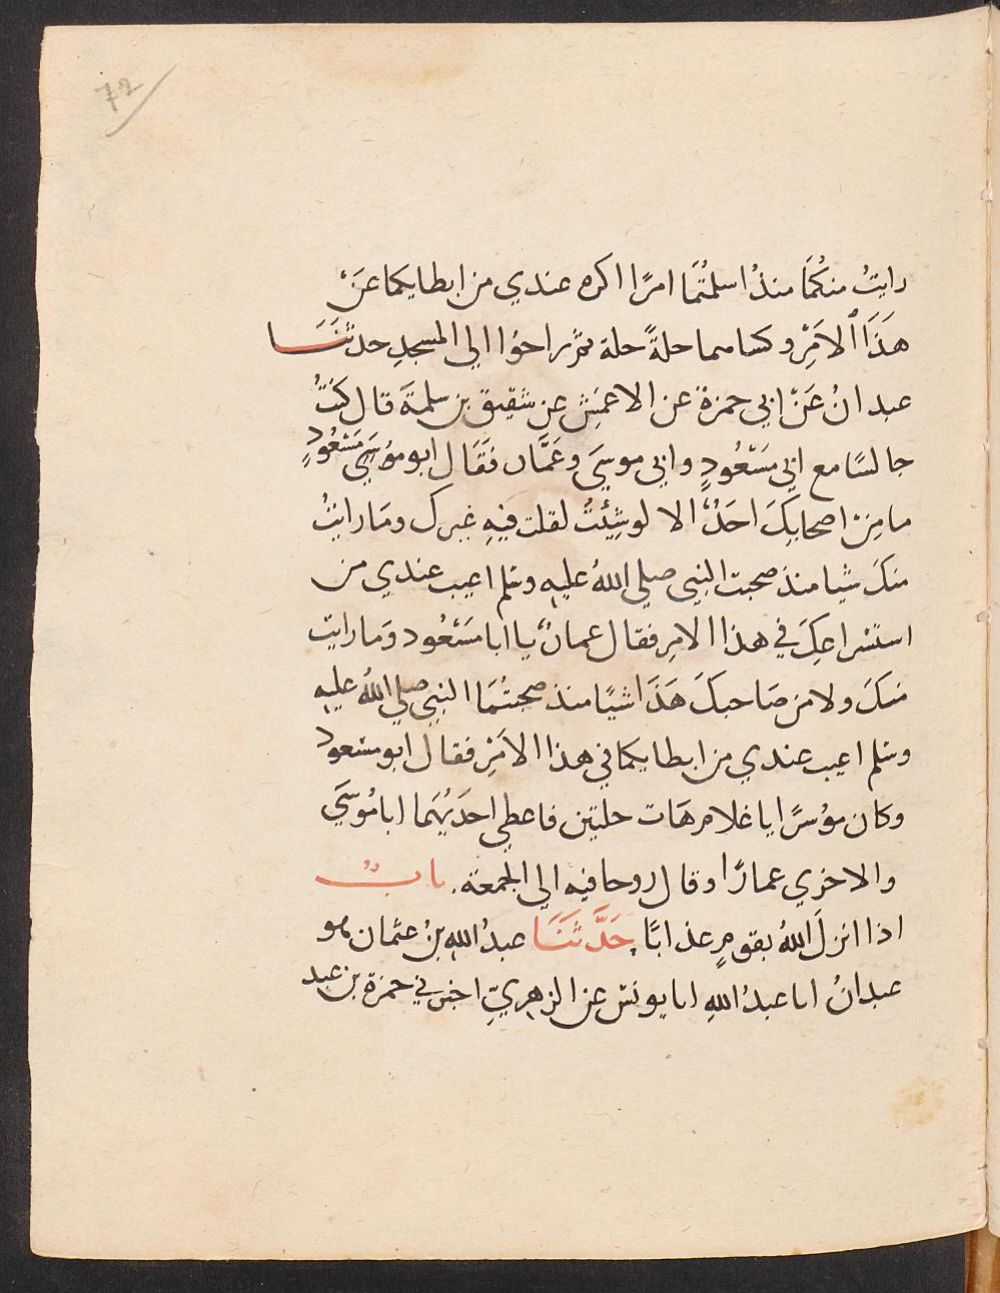 72
رايتُ منكُمَا منذُ اسلمتُمَا امرًا اكره عندي من ابطايكما عَنْ
هَذَا الاَمْرِ وكساهما حلةً حلة ثم راحوا الي المسجدِ حدثَنَا
عبدانُ عَنْ ابي حمزة عن الاعمَشِ عن شقيق بن سلمةَ قال كنتُ
جالسًا مع ابي مَسْعُودٍ وابي موسيَ وعَمَّار فقَال ابو موُسَي مَسْعُودٍ
ما مِنْ اصحابِكَ احَدٌ الا لو شِيْتُ لقلت فيهِ غيرك ومَا رايتُ
منكَ شيا منذ صحبت النبي صلي اللهُ عليهِ وسَلم اعيب عندي من
استسْراعِكَ في هذا الامرِ فقال عمارٌ يا ابا مَسْعُود ومَا رايت
منكَ ولا من صَاحبكَ هَذَا شيًا منذ صحبتُمَا النبي صلي اللهُ عليهِ
وسَلم اعيب عندي من ابطايكما في هذا الاَمْرِ فقال ابو مسْعود
وكان موُسرًا يا غلام هَات حلتين فاعطي احدَيْهما ابا مُوسَي
والاخري عمارًا وقال روحا فيه الي الجمعة باب
اذا انزلَ اللهُ بقومٍ عذابًا حَدَّثَنَا عبدُ اللهِ بنُ عثمان هو
عبدانُ انا عبدُ اللهِ انا يونسُ عن الزهريِّ اخبرني حمزة بن عبد